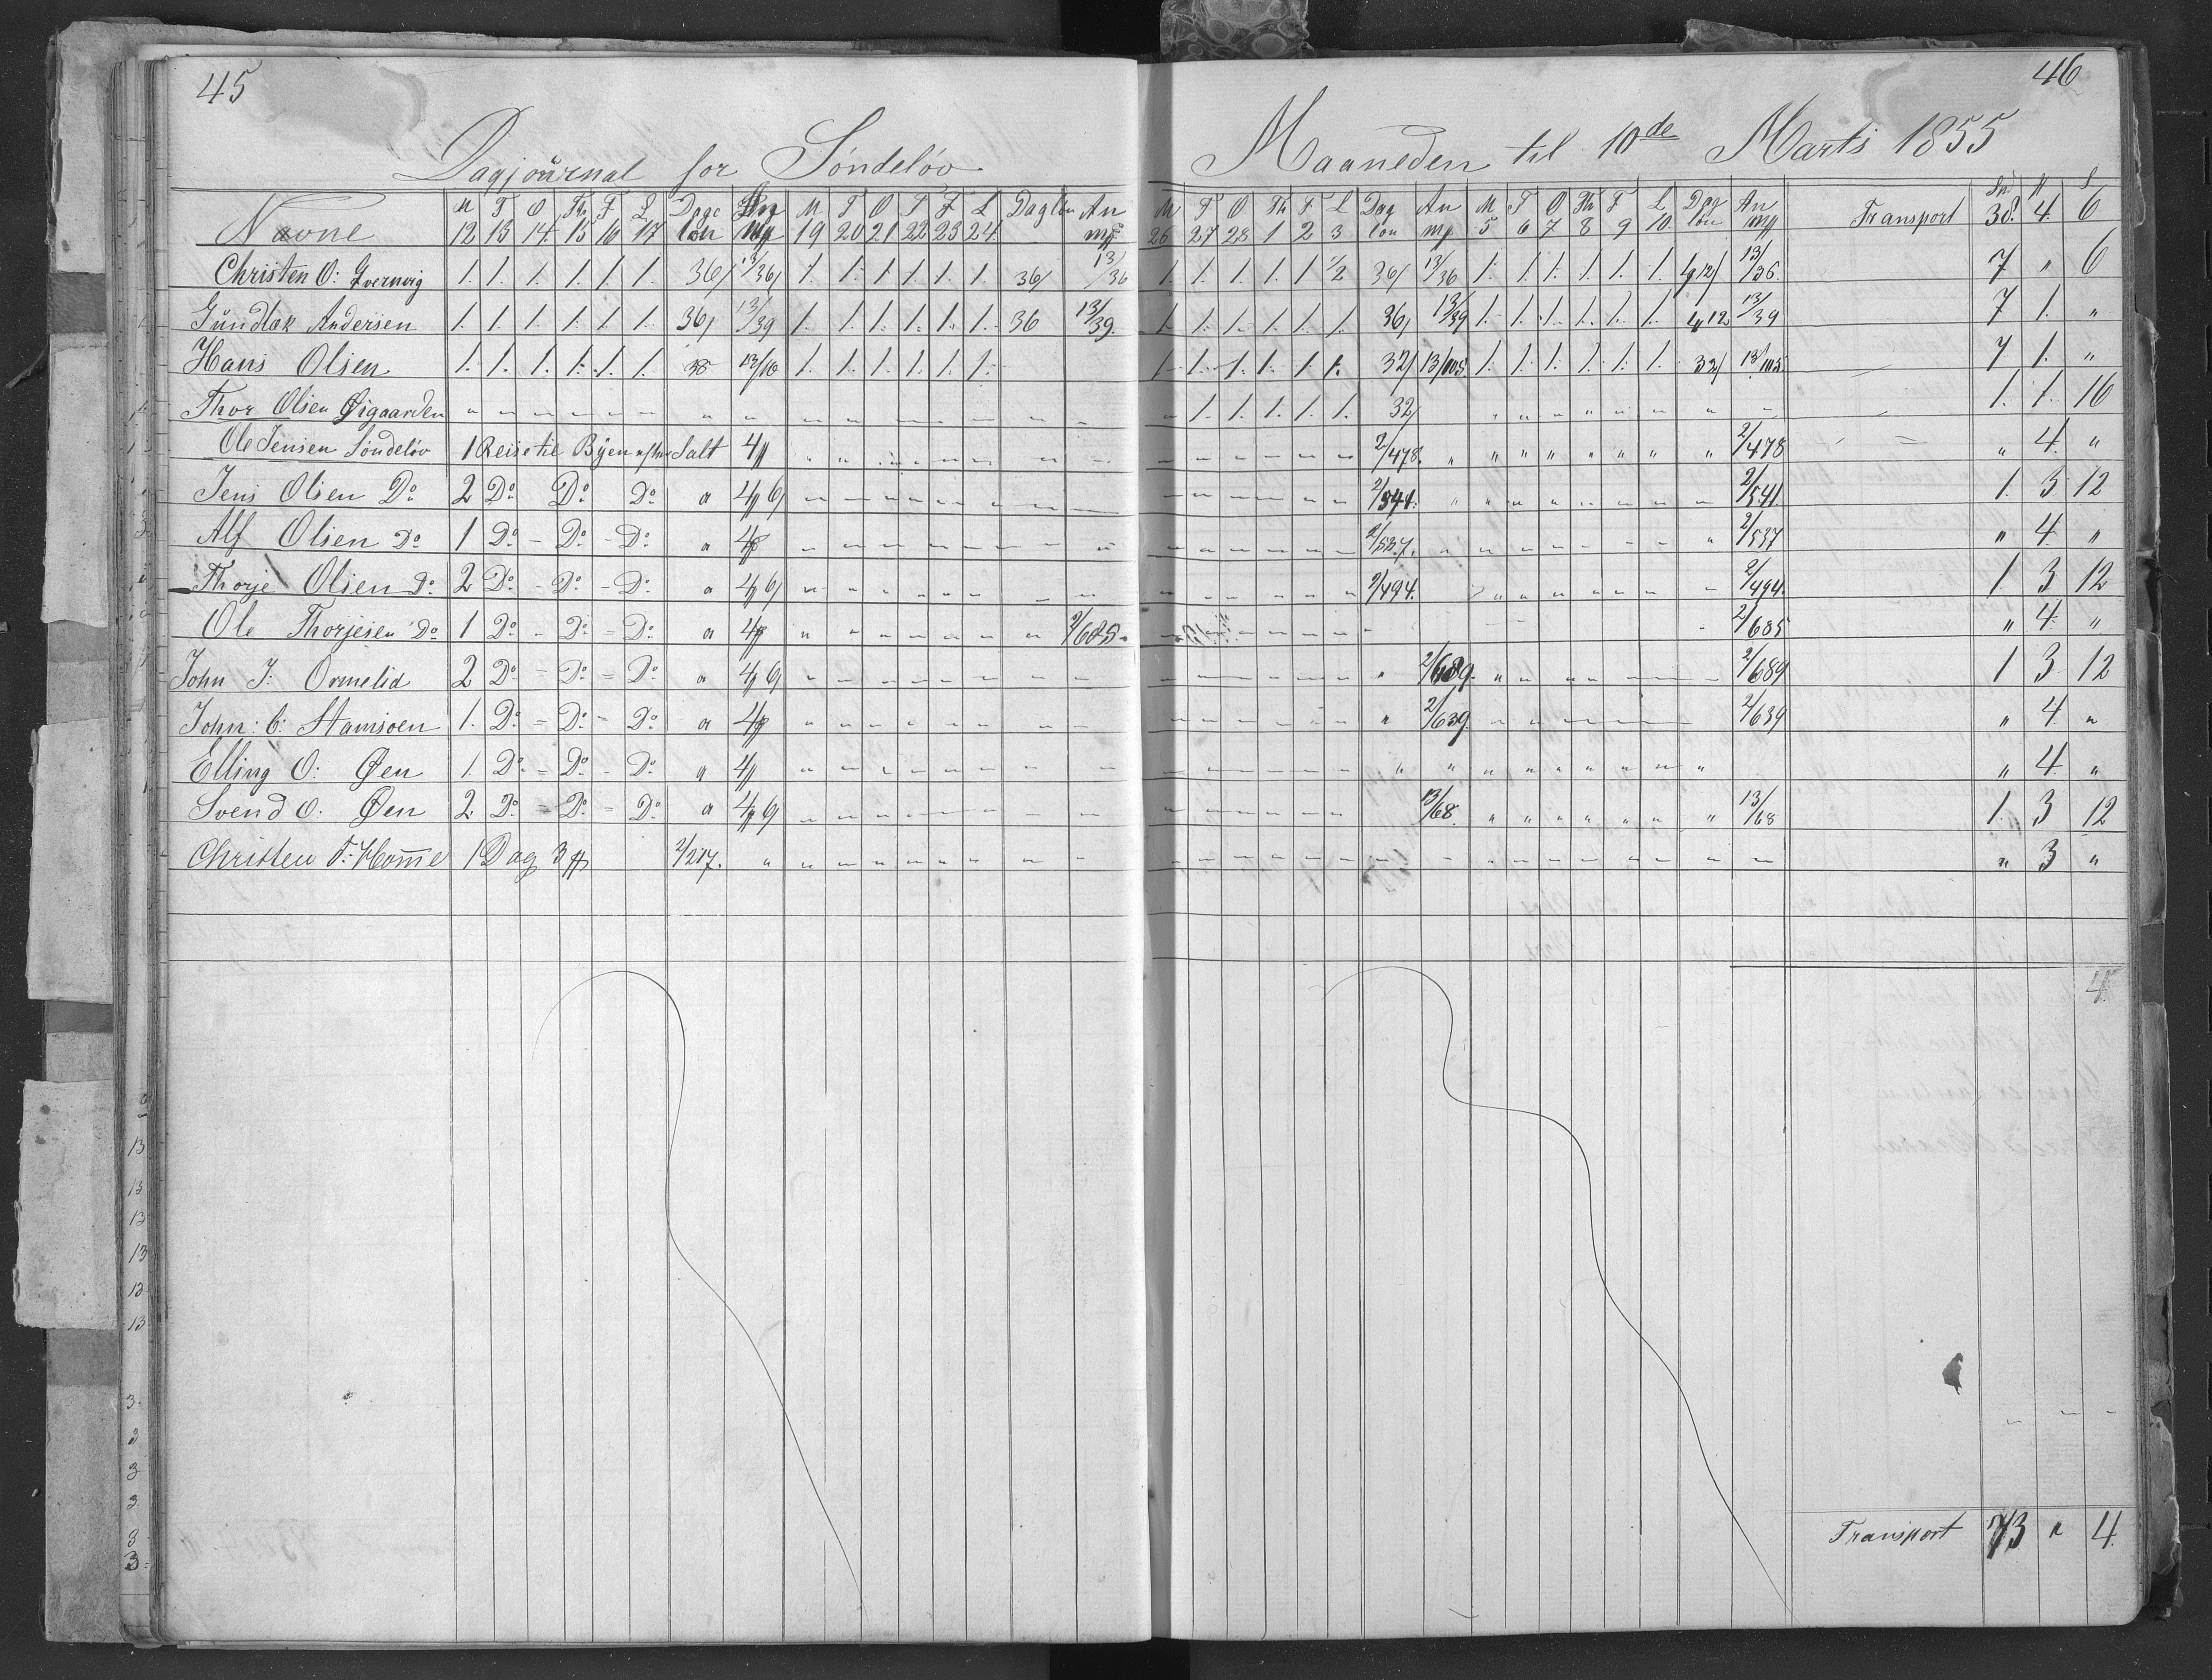 45
Dagjournal for Söndelöv
Navne M 12 T 13 O 14 Th 15 F 16 L 17 Dage lön An mp M 19 T 20 O 21 T 22 F 23 L 24 Daglön An mp
Christen O: 1. 1. 1. 1. 1. 1. 36/ 13/36 1. 1. 1. 1. 1. 1. 36/ 13/36
Gundlak Andersen 1. 1. 1. 1. 1. 1. 36/ 13/39 1. 1. 1. 1. 1. 1. 36 13/39
Hans Olsen 1. 1. 1. 1. 1. 1. 13/10 1. 1. 1. 1. 1. 1.
Thor Olsen Øigaarden " " " " " " " " " " " " " " " "
Ole Jensen Söndelöv 1 Reise til Byen efter Salt 4
Jens Olsen Do 2 Do Do Do a 4 6/
Alf Olsen Do 1 Do - Do - Do a 4
Thorje Olsen Do 2 Do - Do - Do a 4 6/
Ole Thorjesen Do 1 Do - Do = Do a 4 2/685
John J: Ormelid 2 Do = Do = Do a 4 6/
John: C: Stamsoen 1. Do = Do = Do a 4
Elling O: Øen 1. Do = Do - Do a 4
Svend O: Øen 2 Do = Do = Do a 4 6/
Christen T: Homme 1 Dag 3 2/217.
46
Maaneden til 10de Marts 1855
M 26 T 27 O 28 Th 1 F 2 L 3 Dag lön An mp M 5 T 6 O 7 Th 8 F 9 L 10. Dag lön An mp Transport Spd 38. 4. 6
1. 1. 1. 1. 1 1/2 36/ 13/36 1. 1. 1. 1. 1. 1. 4 12/ 13/36. 7 " 6
1. 1. 1. 1. 1. 1. 36/ 13/39 1. 1. 1. 1. 1. 1. 4 12. 13/39 7 1. "
1. 1. 1. 1. 1 1. 32/ 13/105. 1. 1. 1. 1. 1. 1. 32/ 13/105. 7 1. "
" 1. 1. 1. 1. 1. 32/ " " " " " " " " 1. 1. 16
2/478. 2/478 " 4. "
2/541. 2/541. 1. 3 12
2/537. 2/537 " 4. "
2/494. 2/494. 1 3 12
2/685 " 4. "
2/689. 2/689 1 3 12
2/639. 2/639 " 4 "
" 4. "
13/68. 13/68 1. 3 12
" 3 "
4
Transport 73 " 4.